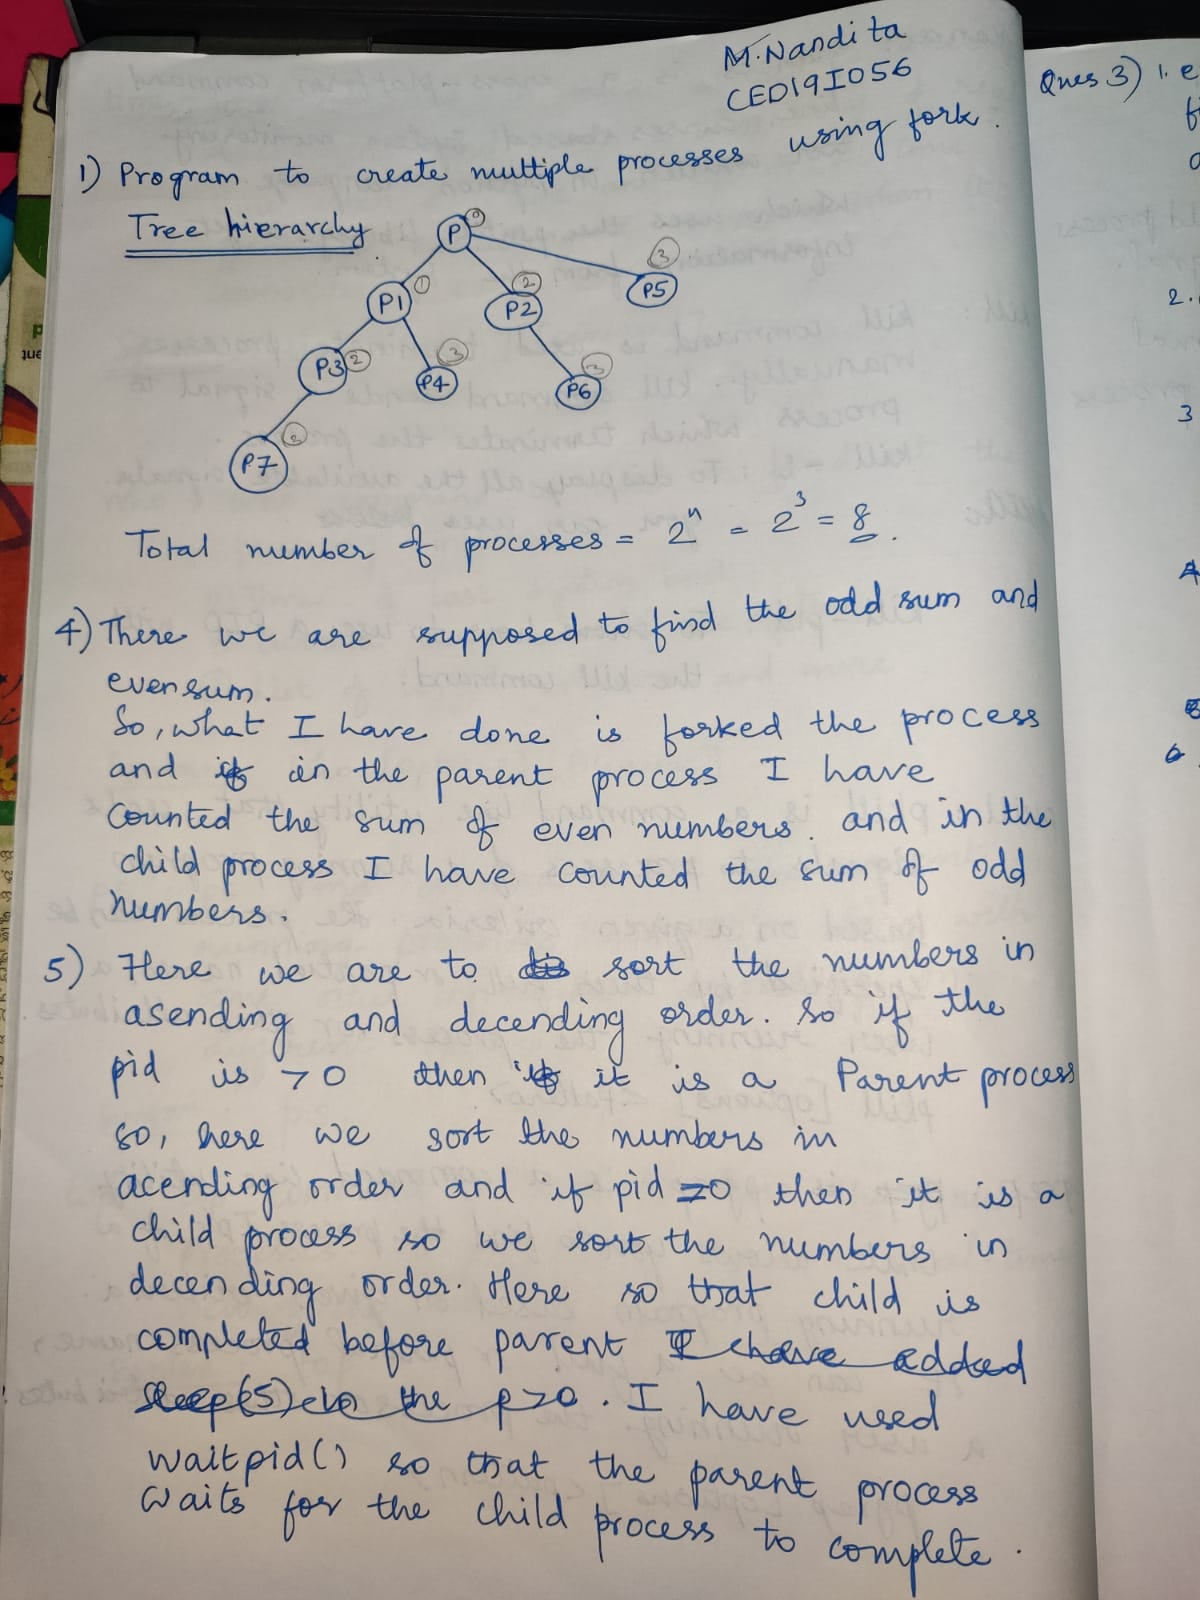 M.Nandita
CED19I056
1) Program to create multiple processes using fork.
Tree hierarchy
P 0
P1 1
P2 2
P5 3
P3 2
P4 3
P6 3
P7 3
Total number of processes = 2^n = 2^3 = 8.
4) There we are supposed to find the odd sum and
even sum.
So, what I have done is forked the process
and in the parent process I have
counted the sum of even numbers. and in the
child process I have counted the sum of odd
numbers.
5) Here we are to sort the numbers in
asending and decending order. So if the
pid is >0 then it is a Parent process
so, here we sort the numbers in
acending order and if pid =0 then it is a
child process so we sort the numbers in
decending order. Here so that child is
completed before parent I have added
sleep(5) in the p>0. I have used
waitpid() so that the parent process
waits for the child process to complete.
Ques 3) 1. e
2.
3
4
5
6